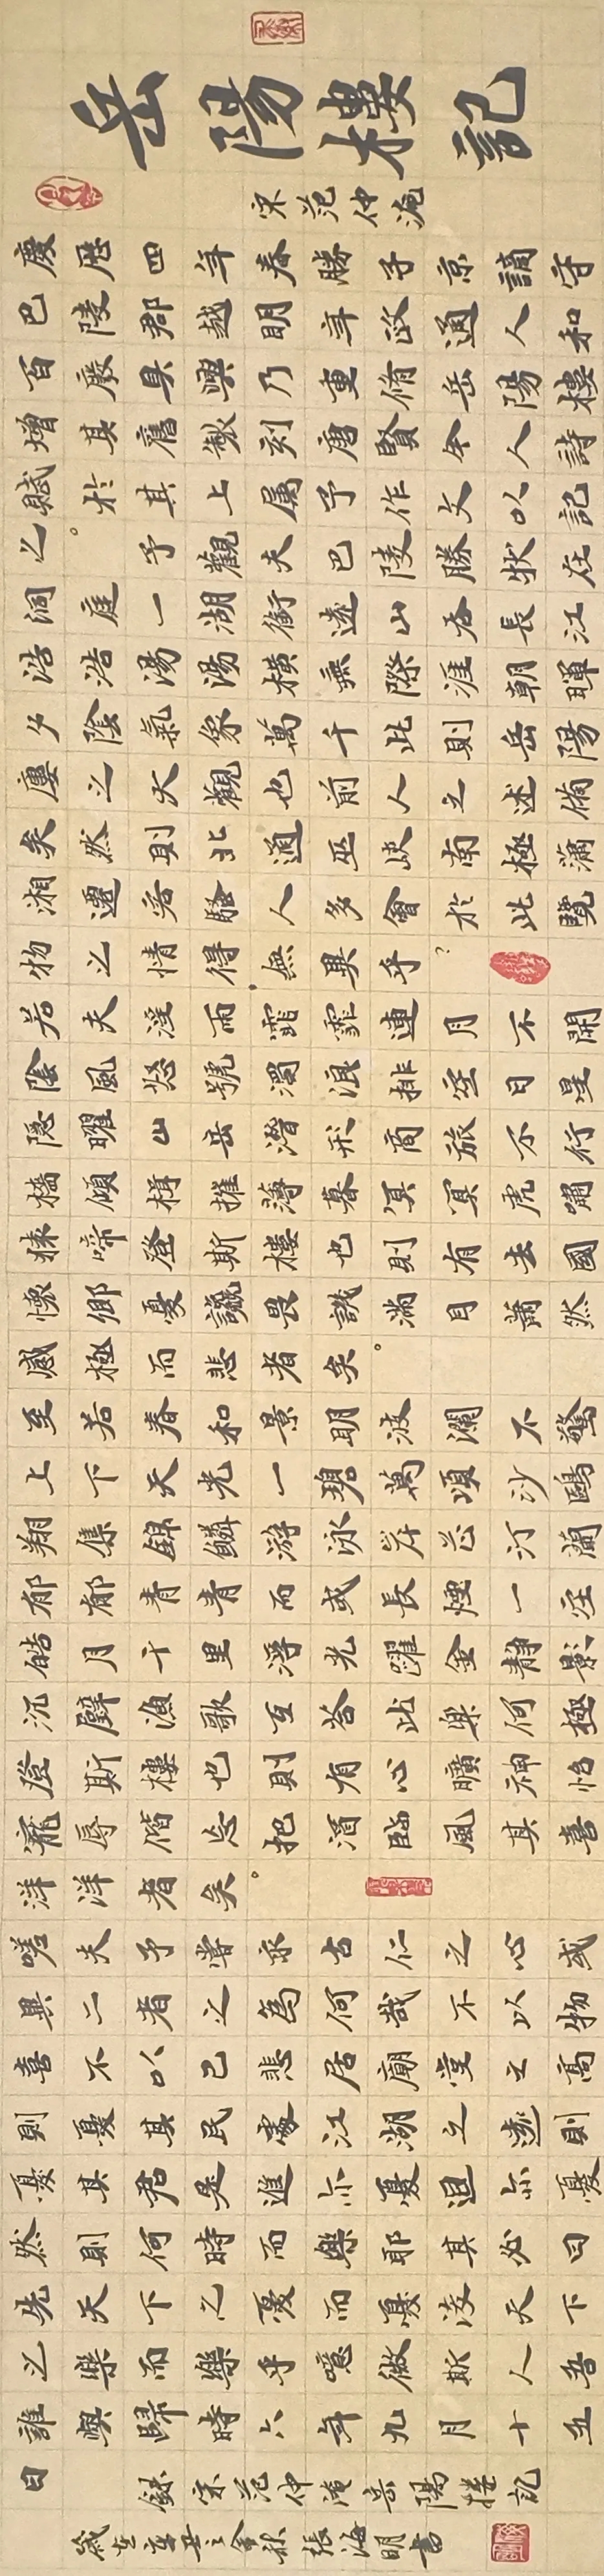 岳陽樓記
宋范仲淹
慶歷四年春滕子京謫守
巴陵郡越明年政通人和
百廢具興乃重脩岳陽樓
增其舊製刻唐賢今人詩
賦於其上属予作文以記
之。予觀夫巴陵勝狀在
洞庭一湖銜遠山吞長江
浩浩湯湯橫無際涯朝暉
夕陰氣象萬千此則岳陽
廔之大觀也前人之述備
矣然則北通巫峽南極瀟
湘遷客騷人多會於此覽
物之情得無異乎?
若夫淫雨霏霏連月不開
陰風怒號濁浪排空日星
隱曜山岳潛形商旅不行
檣傾楫摧薄暮冥冥虎嘯
猿啼登斯樓也則有去國
懷鄉憂讒畏譏滿目蕭然
感極而悲者矣。
至若春和景明波瀾不驚
上下天光一碧萬頃沙鷗
翔集錦鱗游泳岸芷汀蘭
郁郁青青而或長煙一空
皓月千里浮光躍金靜影
沉璧漁歌互答此樂何極
登斯樓也則有心曠神怡
寵辱偕忘把酒臨風其喜
洋洋者矣。
嗟夫予嘗求古仁之心或
異二者之為何哉不以物
喜不以己悲居廟堂之高
則憂其民處江湖之遠則
憂其君是進亦憂退亦憂
然則何時而樂耶其必曰
先天下之憂而憂後天下
之樂而樂乎噫微斯人吾
誰與歸時六年九月十五
日
錄宋范仲淹岳陽樓記
歲在辛丑之金秋張海明書